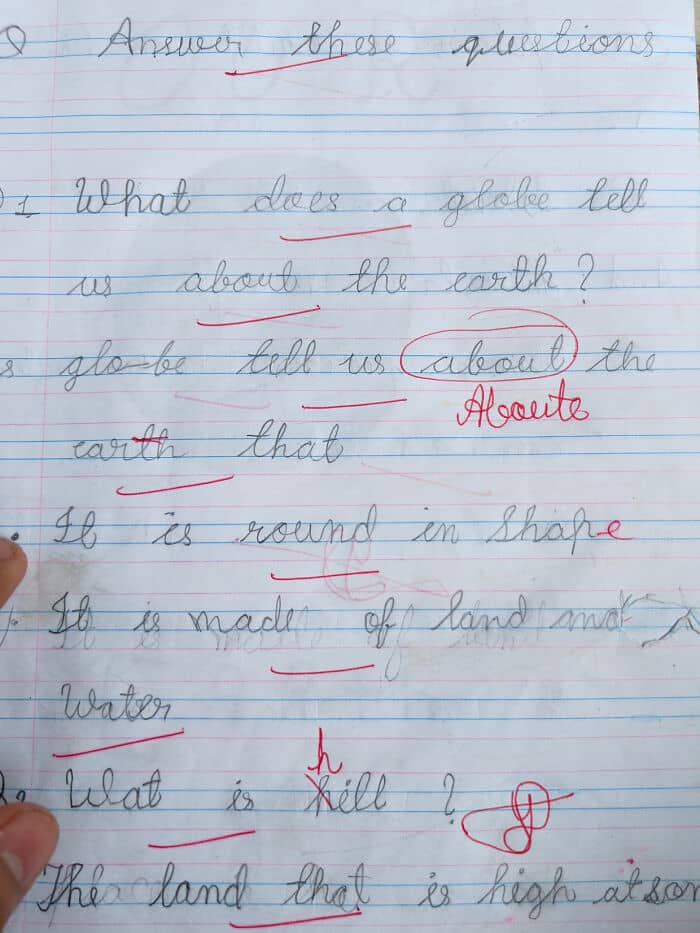 Q Answer these questions
Q1 What does a globe tell
us about the earth?
s globe tell us about the
Aboute
earth that
. It is round in shape
. It is made of land and
Water
h
2. Wat is hill ?
The land that is high at som